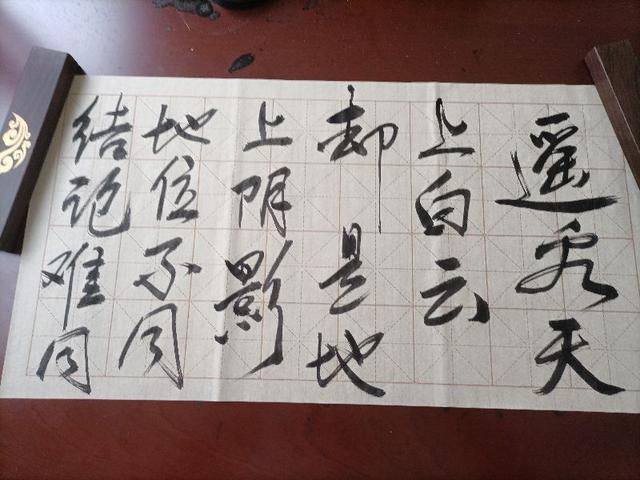 遥看天
上白云
却是地
上阴影
地位不同
结论难同